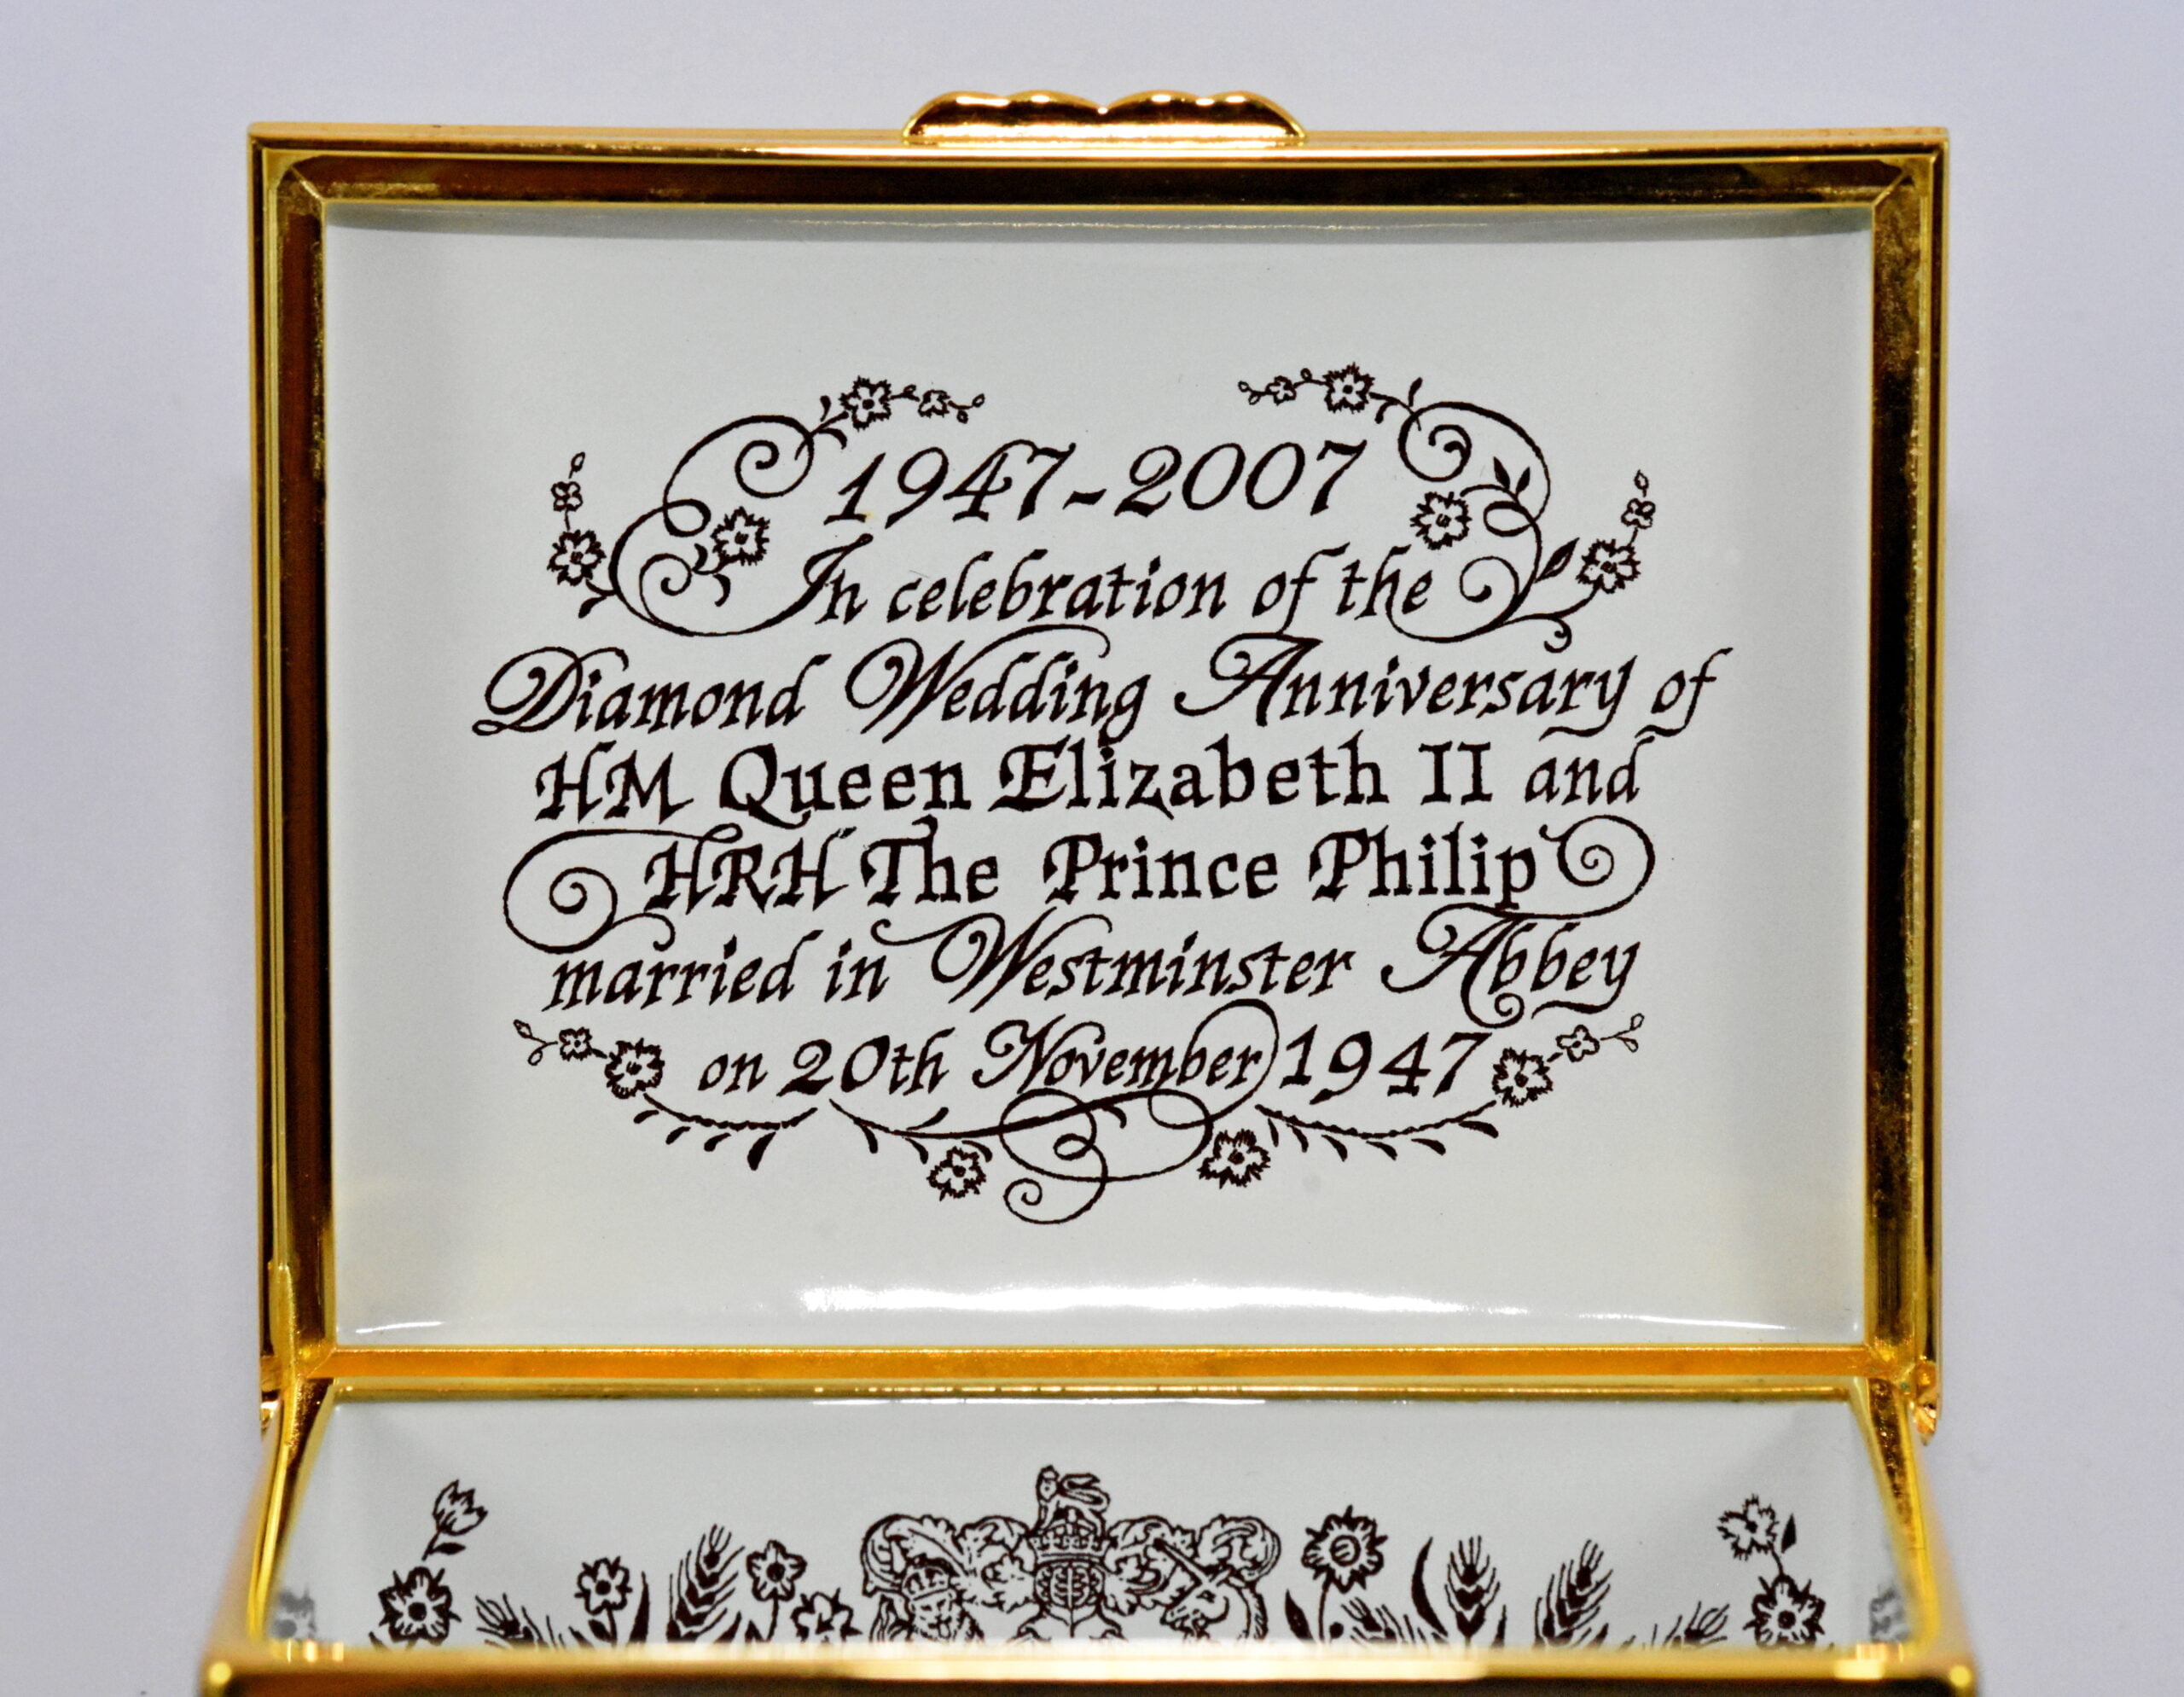 1947-2007
In celebration of the
Diamond Wedding Anniversary of
HM Queen Elizabeth II and
HRH The Prince Philip
married in Westminster Abbey
on 20th November 1947